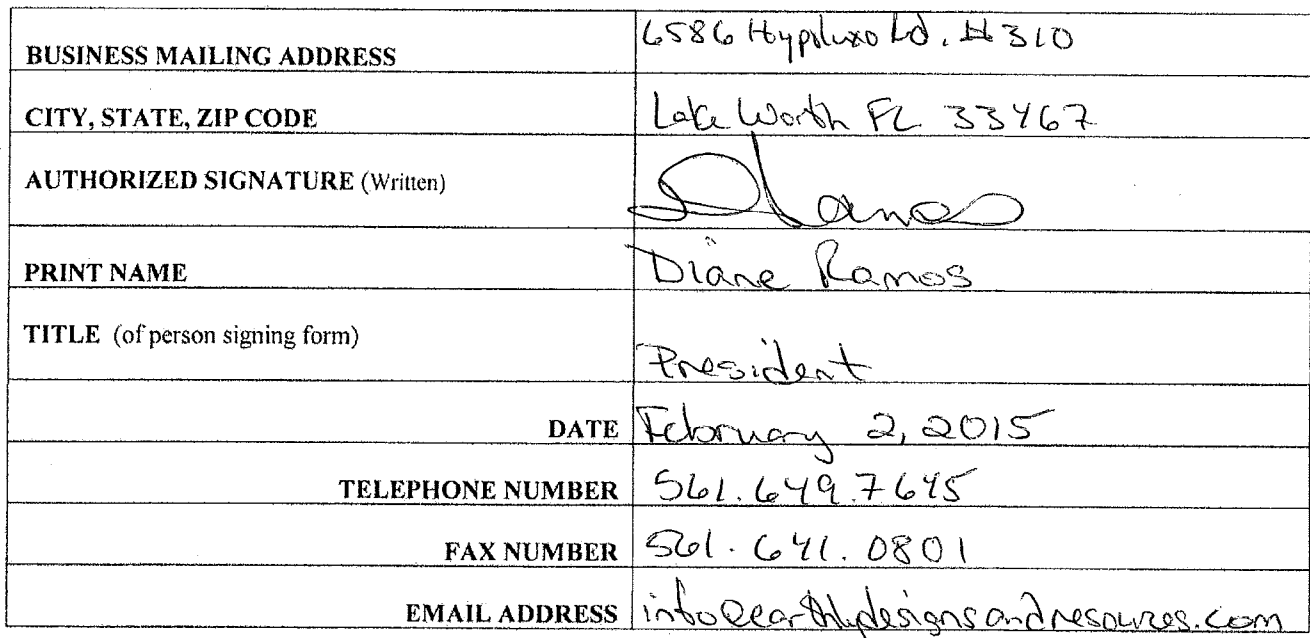 BUSINESS MAILING ADDRESS 6586 Hypoluxo Rd. #310
CITY, STATE, ZIP CODE Lake Worth FL 33467
AUTHORIZED SIGNATURE (Written) DRamos
PRINT NAME Diane Ramos
TITLE (of person signing form) President
DATE February 2, 2015
TELEPHONE NUMBER 561.649.7645
FAX NUMBER 561.641.0801
EMAIL ADDRESS info@earthlydesignsandresources.com